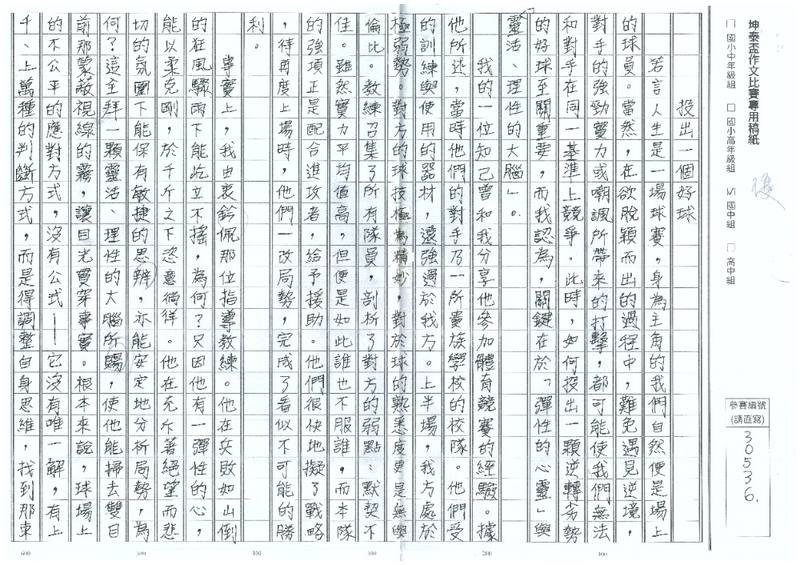 坤泰盃作文比賽專用稿紙
□ 國小中年級組 □ 國小高年級組 ☑ 國中組 □ 高中組
參賽編號
(請直寫)
30536.
投出一個好球
若言人生是一場球賽，身為主角的我們自然便是場上
的球員。當然，在欲脫穎而出的過程中，難免遇見逆境，
對手的強勁實力或嘲諷所帶來的打擊，都可能使我們無法
和對手在同一基準上競爭。此時，如何投出一顆逆轉劣勢
的好球至關重要，而我認為，關鍵在於「彈性的心靈」與
靈活、理性的大腦」。
我的一位知己曾和我分享他參加體育競賽的經驗。據
他所述，當時他們的對手乃一所貴族學校的校隊。他們受
的訓練與使用的器材，遠強過於我方。上半場，我方處於
極弱勢。對方的球技極為精妙，對於球的熟悉度更是無與
倫比。教練召集了所有隊員，剖析了對方的弱點：默契不
佳。雖然實力平均值高，但便是如此誰也不服誰，而本隊
的強項正是配合進攻者，給予援助。他們很快地擬了戰略
，待再度上場時，他們一改局勢，完成了看似不可能的勝
利。
事實上，我由衷欽佩那位指導教練。他在兵敗如山倒
的狂風驟雨下能屹立不搖，為何？只因他有一彈性的心，
能以柔克剛，於千斤之下恣意徜徉。他在充斥著絕望而悲
切的氛圍下能保有敏捷的思辨，亦能安定地分析局勢，為
何？這全拜一顆靈活、理性的大腦所賜，使他能掃去雙目
前那蒙蔽視線的霧，讓目光貫穿事實。根本來說，球場上
的不公平的應對方式，沒有公式——它沒有唯一解，有上
千、上萬種的判斷方式，而是得調整自身思維，找到那束
600
500
400
300
200
100